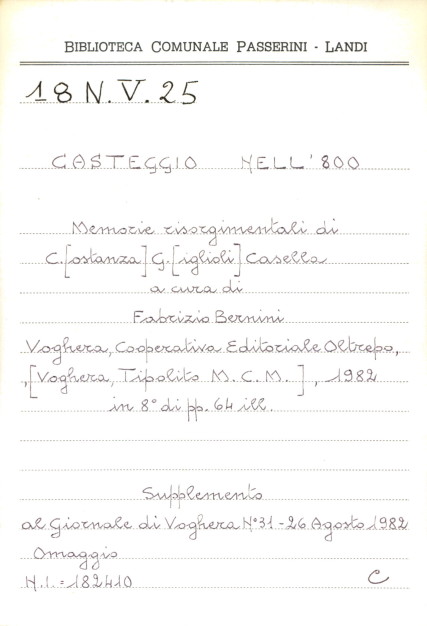 BIBLIOTECA COMUNALE PASSERINI - LANDI
18 N.V. 25
CASTEGGIO NELL'800
Memorie risorgimentali di
C.[ostanza] G.[iglioli] Casella
a cura di
Fabrizio Bernini
Voghera, Cooperativa Editoriale Oltrepo,
,[Voghera, Tipolito M.C.M.], 1982
in 8° di pp. 64 ill.
Supplemento
al Giornale di Voghera N°31 - 26 Agosto 1982
Omaggio
N.I. = 182410 C